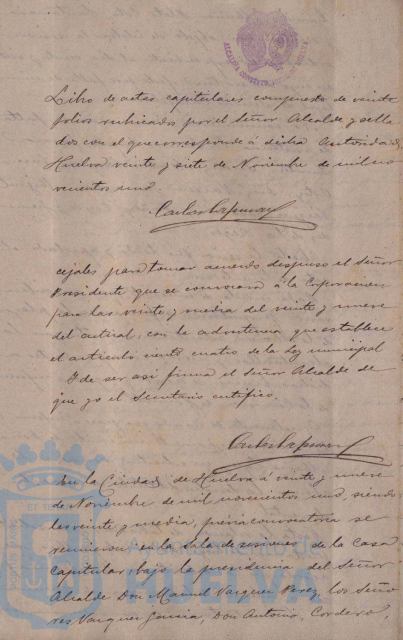 ALCALDIA CONSTITUCIONAL HUELVA
Libro de actas capitulares compuesto de veinte
folios rubricados por el Señor Alcalde y sella
dos con el que corresponde á dicha Autoridad
Huelva veinte y siete de Noviembre de mil no
vecientos uno
cejales para tomar acuerdo dispuso el Señor
Presidente que se convocara á la Corporacion
para las veinte y media del veinte y nueve
del actual, con la advertencia que establece
el artículo ciento cuatro de la Ley municipal
Y de ser asi firma el Señor Alcalde de
que yo el Secretario certifico.
En la Ciudad de Huelva á veinte y nueve
de Noviembre de mil novecientos uno, siendo
las veinte y media, previa convocatoria se
reunieron en la Sala de sesiones de la Casa
Capitular, bajo la presidencia del Señor
Alcalde Don Manuel Vazquez Perez, los Seño
res Vazquez Garcia, Don Antonio, Cordero,
Ayuntamiento de
HUELVA